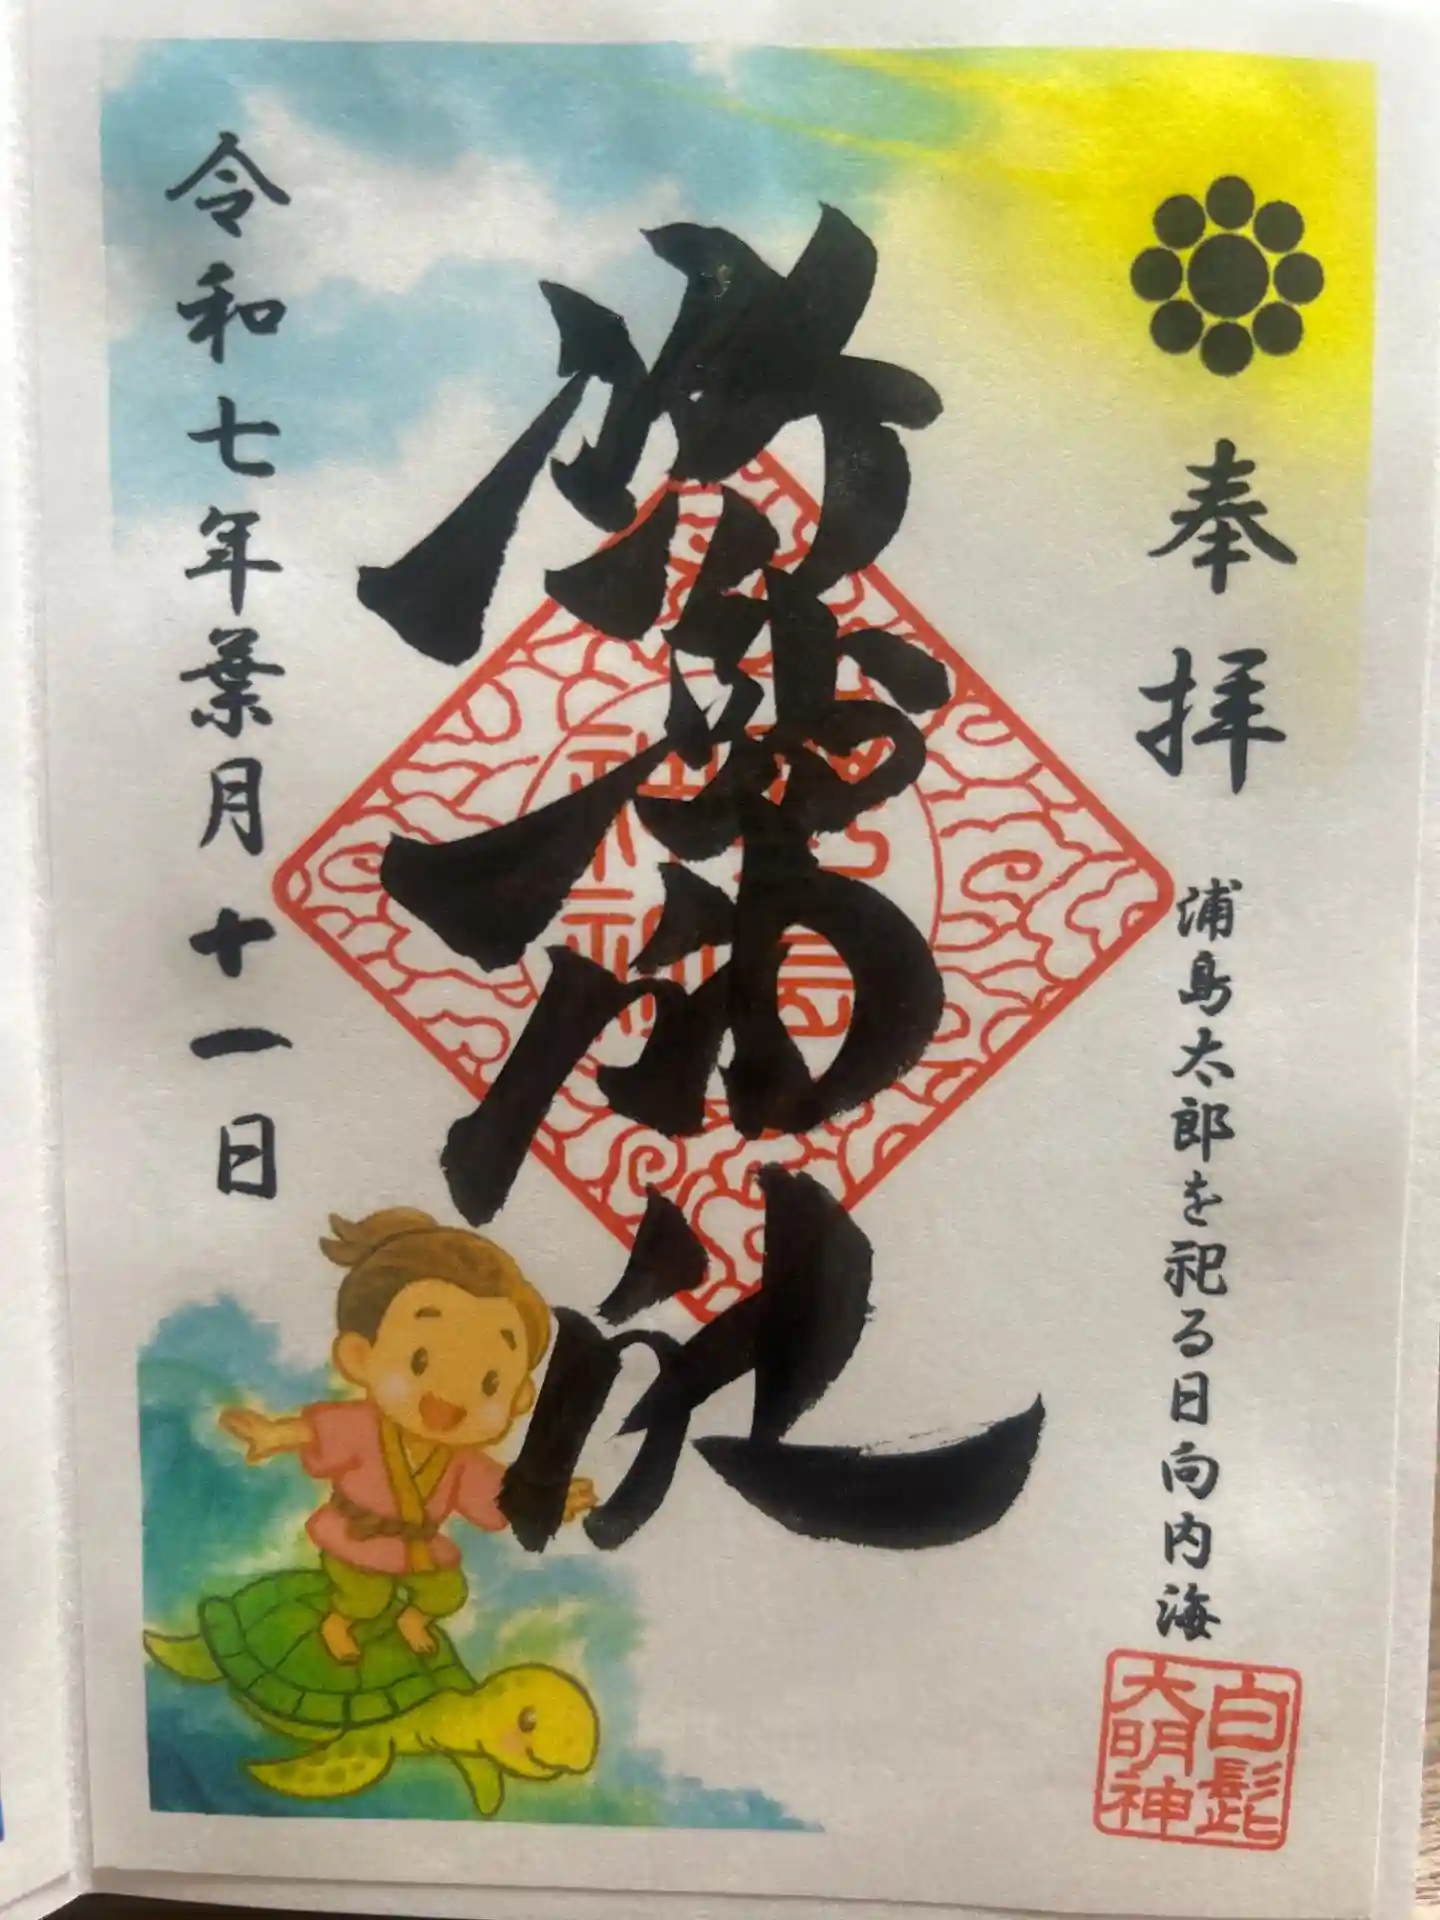 奉拝
浦島太郎を祀る日向内海
白髭
大明神
野島神社
令和七年葉月十一日